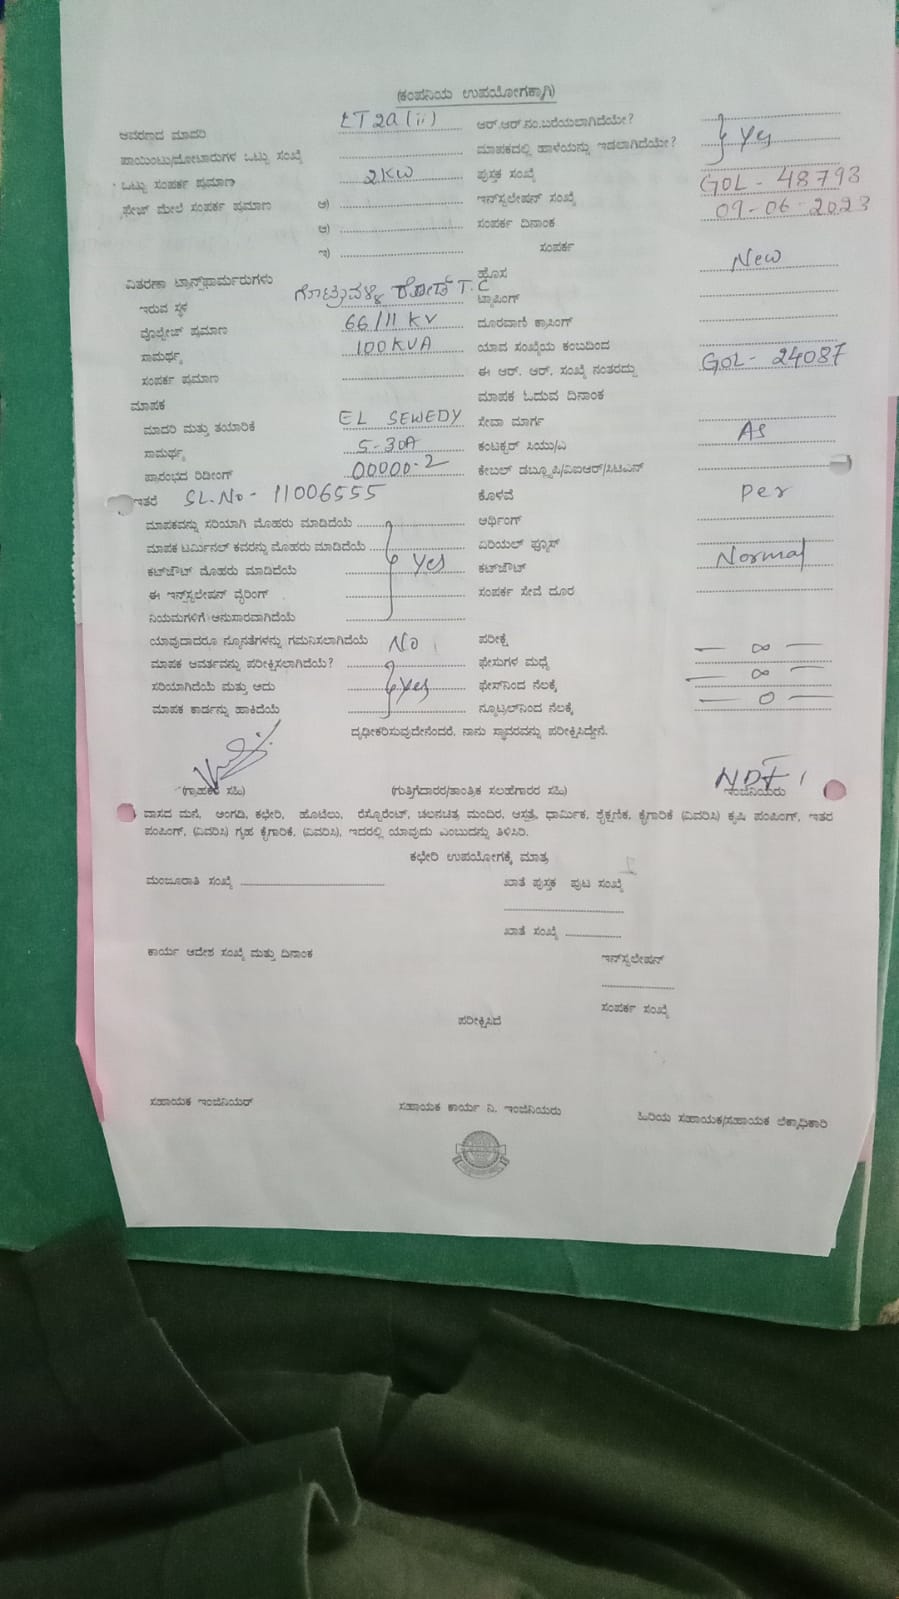 (ಕಂಪನಿಯ ಉಪಯೋಗಕ್ಕಾಗಿ)
ಆವರಣದ ಮಾದರಿ LT2a(ii) ಆರ್.ಆರ್.ನಂ.ಬರೆಯಲಾಗಿದೆಯೇ?
ಪಾಯಿಂಟು/ಮೋಟಾರುಗಳ ಒಟ್ಟು ಸಂಖ್ಯೆ ಮಾಪಕದಲ್ಲಿ ಹಾಳೆಯನ್ನು ಇಡಲಾಗಿದೆಯೇ? Yes
ಒಟ್ಟು ಸಂಪರ್ಕ ಪ್ರಮಾಣ 2KW ಪುಸ್ತಕ ಸಂಖ್ಯೆ
ಫೇಜ್ ಮೇಲೆ ಸಂಪರ್ಕ ಪ್ರಮಾಣ ಅ) ಇನ್‌ಸ್ಟಲೇಷನ್ ಸಂಖ್ಯೆ GOL - 48793
ಆ) ಸಂಪರ್ಕ ದಿನಾಂಕ 09-06-2023
ಇ) ಸಂಪರ್ಕ
ವಿತರಣಾ ಟ್ರಾನ್ಸ್‌ಫಾರ್ಮರುಗಳು ಹೊಸ New
ಇರುವ ಸ್ಥಳ ರೋಡ್ T.C ಟ್ಯಾಪಿಂಗ್
ವೋಲ್ಟೇಜ್ ಪ್ರಮಾಣ 66/11 KV ದೂರವಾಣಿ ಕ್ರಾಸಿಂಗ್
ಸಾಮರ್ಥ್ಯ 100KVA ಯಾವ ಸಂಖ್ಯೆಯ ಕಂಬದಿಂದ
ಸಂಪರ್ಕ ಪ್ರಮಾಣ ಈ ಆರ್. ಆರ್. ಸಂಖ್ಯೆ ನಂತರದ್ದು GOL - 24087
ಮಾಪಕ ಮಾಪಕ ಓದುವ ದಿನಾಂಕ
ಮಾದರಿ ಮತ್ತು ತಯಾರಿಕೆ EL SEWEDY ಸೇವಾ ಮಾರ್ಗ
ಸಾಮರ್ಥ್ಯ 5-30A ಕಂಟಕ್ಟರ್ ಸಿಯು/ಎ As
ಪ್ರಾರಂಭದ ರಿಡೀಂಗ್ 00000.2 ಕೇಬಲ್ ಡಬ್ಲ್ಯೂಪಿ/ವಿಐಆರ್/ಸಿಟಿಎಸ್
ಇತರೆ SL.No - 11006555 ಕೊಳವೆ Per
ಮಾಪಕವನ್ನು ಸರಿಯಾಗಿ ಮೊಹರು ಮಾಡಿದೆಯೆ ಅರ್ಥಿಂಗ್
ಮಾಪಕ ಟರ್ಮಿನಲ್ ಕವರನ್ನು ಮೊಹರು ಮಾಡಿದೆಯೆ ಏರಿಯಲ್ ಫ್ಯೂಸ್
ಕಟ್‌ಔಟ್ ಮೊಹರು ಮಾಡಿದೆಯೆ Yes ಕಟ್‌ಔಟ್ Normal
ಈ ಇನ್‌ಸ್ಟಲೇಷನ್ ವೈರಿಂಗ್ ಸಂಪರ್ಕ ಸೇವೆ ದೂರ
ನಿಯಮಗಳಿಗೆ ಅನುಸಾರವಾಗಿದೆಯೆ
ಯಾವುದಾದರೂ ನ್ಯೂನತೆಗಳನ್ನು ಗಮನಿಸಲಾಗಿದೆಯೆ No ಪರೀಕ್ಷೆ
ಮಾಪಕ ಆವರ್ತವನ್ನು ಪರೀಕ್ಷಿಸಲಾಗಿದೆಯೆ? ಫೇಸುಗಳ ಮಧ್ಯೆ — ∞ —
ಸರಿಯಾಗಿದೆಯೆ ಮತ್ತು ಅದು Yes ಫೇಸ್‌ನಿಂದ ನೆಲಕ್ಕೆ — ∞ —
ಮಾಪಕ ಕಾರ್ಡನ್ನು ಹಾಕಿದೆಯೆ ನ್ಯೂಟ್ರಲ್‌ನಿಂದ ನೆಲಕ್ಕೆ — 0 —
ದೃಢೀಕರಿಸುವುದೇನೆಂದರೆ, ನಾನು ಸ್ಥಾವರವನ್ನು ಪರೀಕ್ಷಿಸಿದ್ದೇನೆ.
(ಗ್ರಾಹಕರ ಸಹಿ) (ಗುತ್ತಿಗೆದಾರರ/ತಾಂತ್ರಿಕ ಸಲಹೆಗಾರರ ಸಹಿ) ಇಂಜಿನಿಯರು
ವಾಸದ ಮನೆ, ಅಂಗಡಿ, ಕಛೇರಿ, ಹೊಟೇಲು, ರೆಸ್ಟೋರೆಂಟ್, ಚಲನಚಿತ್ರ ಮಂದಿರ, ಆಸ್ಪತ್ರೆ, ಧಾರ್ಮಿಕ, ಶೈಕ್ಷಣಿಕ, ಕೈಗಾರಿಕೆ (ವಿವರಿಸಿ) ಕೃಷಿ ಪಂಪಿಂಗ್, ಇತರ
ಪಂಪಿಂಗ್, (ವಿವರಿಸಿ) ಗೃಹ ಕೈಗಾರಿಕೆ, (ವಿವರಿಸಿ), ಇದರಲ್ಲಿ ಯಾವುದು ಎಂಬುದನ್ನು ತಿಳಿಸಿರಿ.
ಕಛೇರಿ ಉಪಯೋಗಕ್ಕೆ ಮಾತ್ರ
ಮಂಜೂರಾತಿ ಸಂಖ್ಯೆ ಖಾತೆ ಪುಸ್ತಕ ಪುಟ ಸಂಖ್ಯೆ
ಖಾತೆ ಸಂಖ್ಯೆ
ಕಾರ್ಯ ಆದೇಶ ಸಂಖ್ಯೆ ಮತ್ತು ದಿನಾಂಕ ಇನ್‌ಸ್ಟಲೇಷನ್
ಸಂಪರ್ಕ ಸಂಖ್ಯೆ
ಪರೀಕ್ಷಿಸಿದೆ
ಸಹಾಯಕ ಇಂಜಿನಿಯರ್ ಸಹಾಯಕ ಕಾರ್ಯ ನಿ. ಇಂಜಿನಿಯರು ಹಿರಿಯ ಸಹಾಯಕ/ಸಹಾಯಕ ಲೆಕ್ಕಾಧಿಕಾರಿ